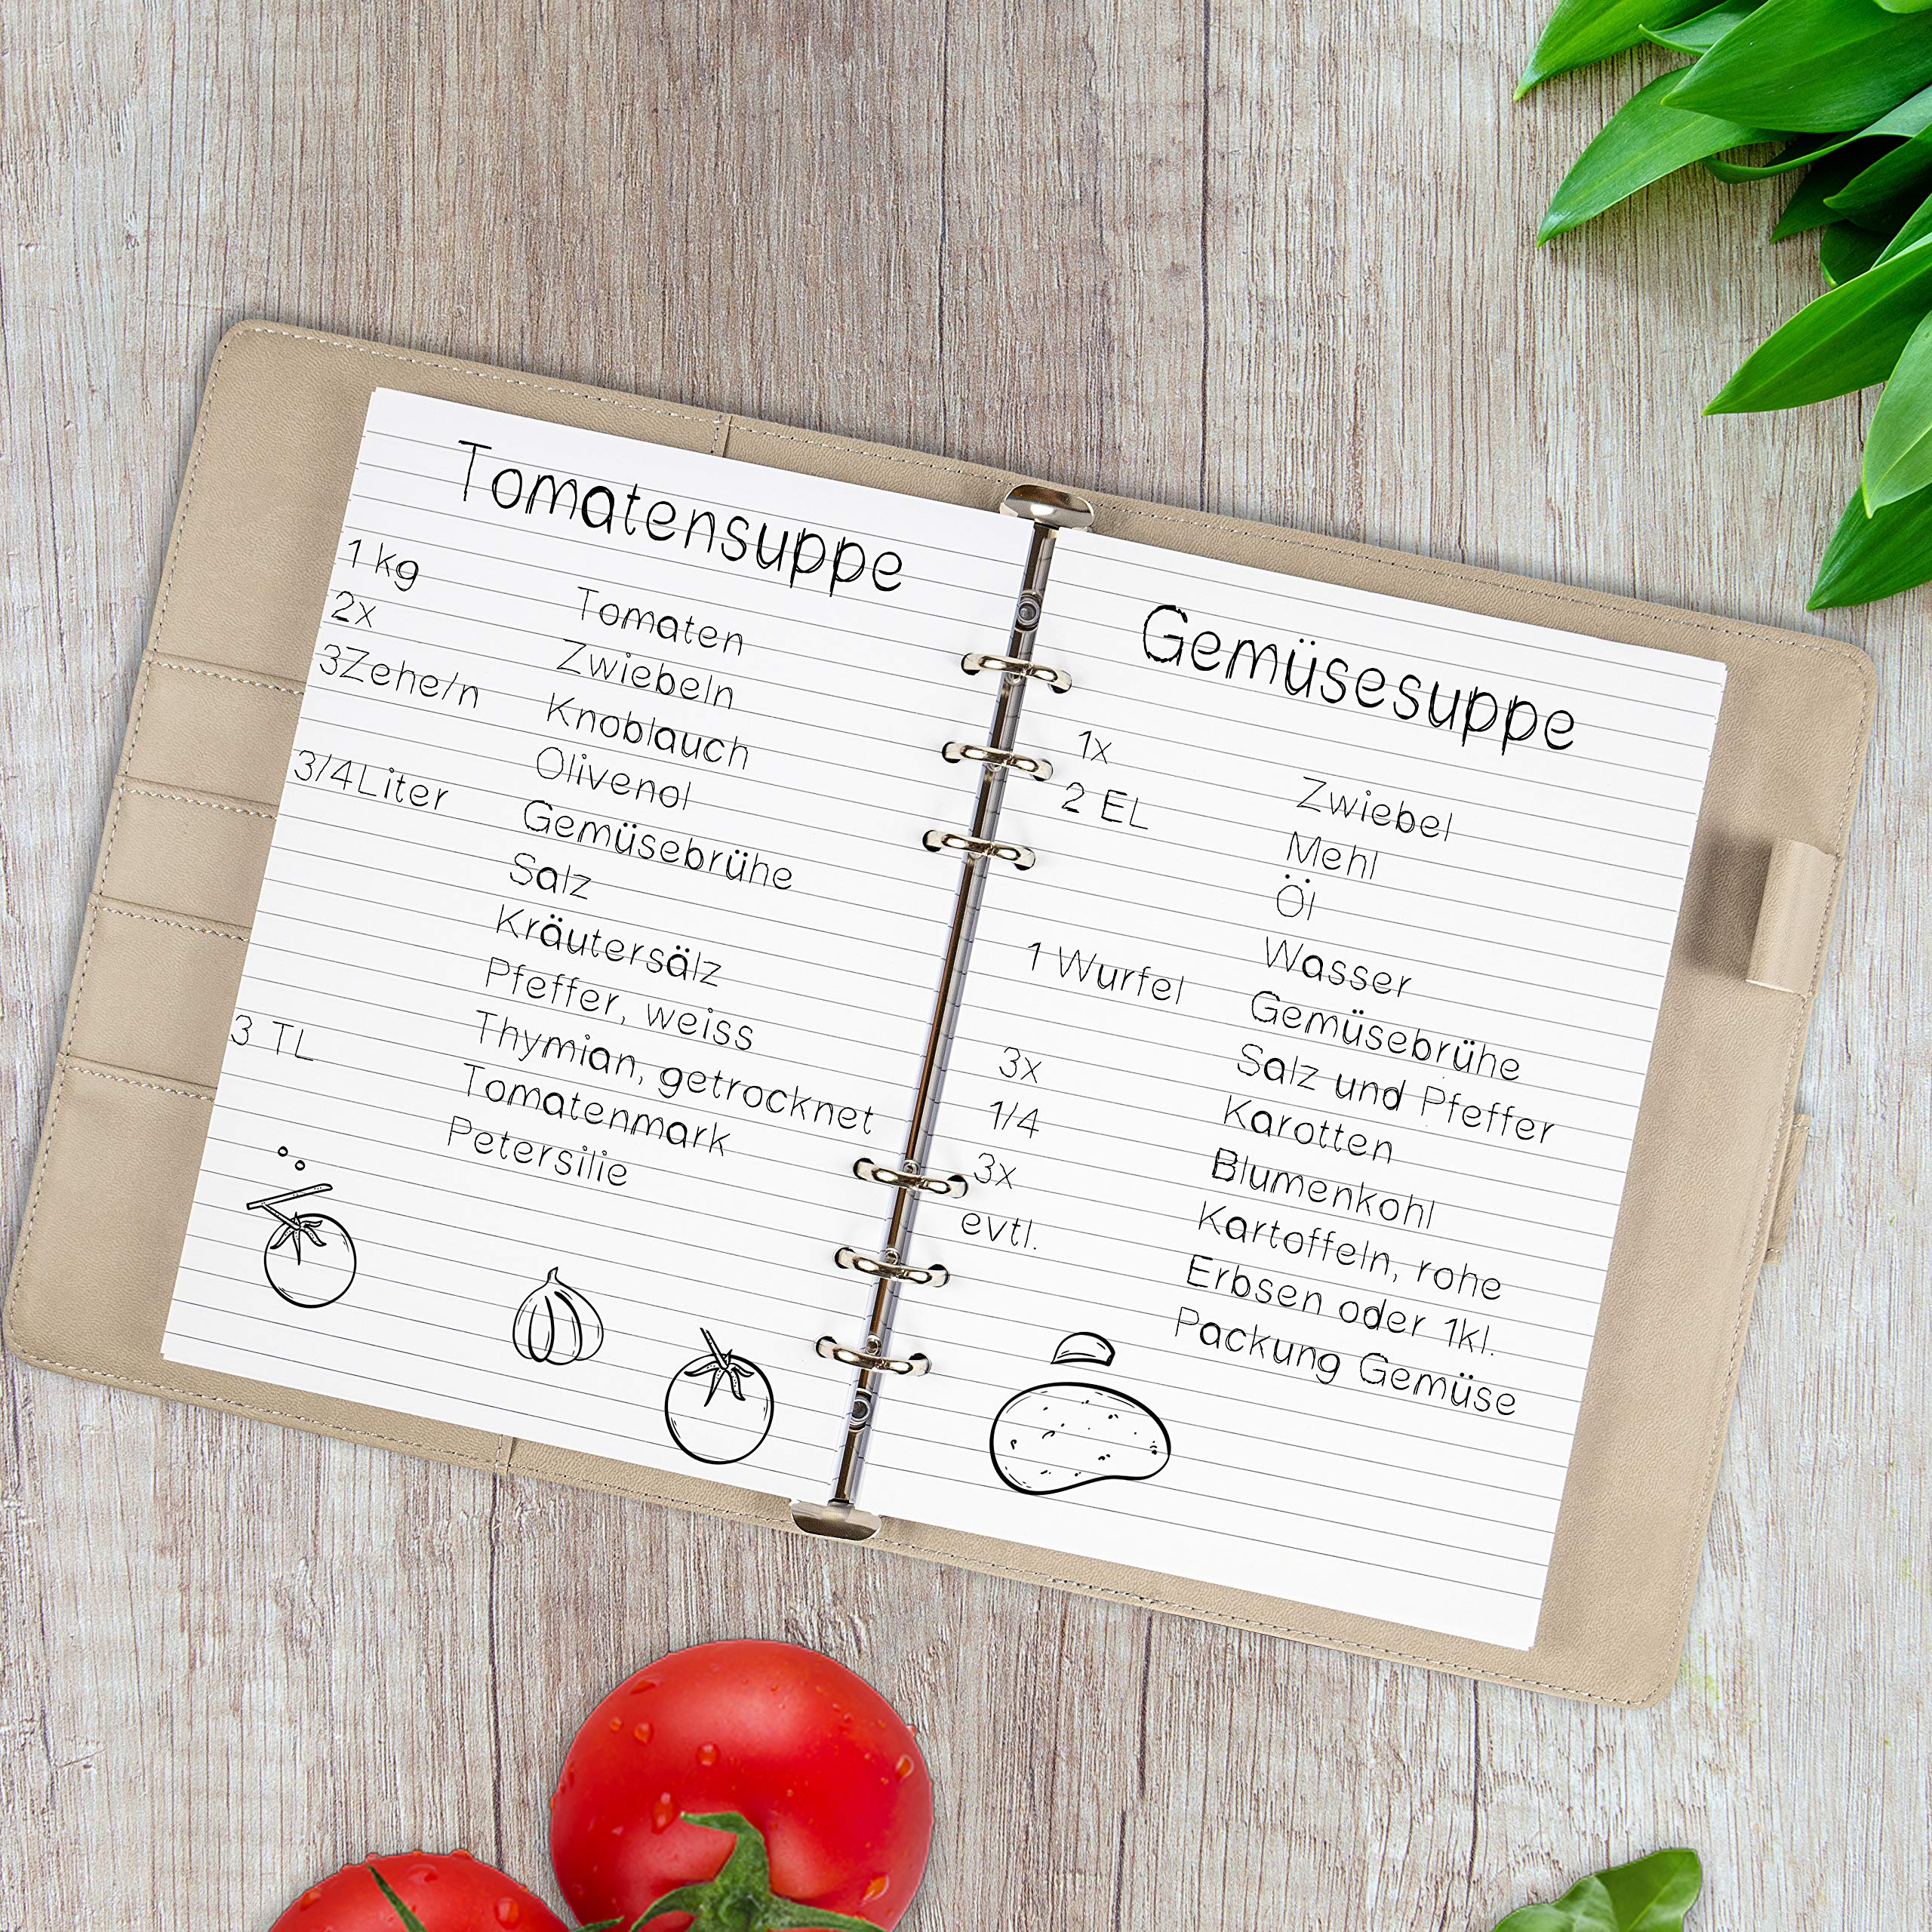 Tomatensuppe
1 kg Tomaten
2x Zwiebeln
3Zehe/n Knoblauch
Olivenol
3/4Liter Gemüsebrühe
Salz
Kräutersälz
Pfeffer, weiss
Thymian, getrocknet
3 TL Tomatenmark
Petersilie
Gemüsesuppe
1x Zwiebel
2 EL Mehl
Öl
Wasser
1 Wurfel Gemüsebrühe
Salz und Pfeffer
3x Karotten
1/4 Blumenkohl
3x Kartoffeln, rohe
evtl. Erbsen oder 1kl.
Packung Gemüse